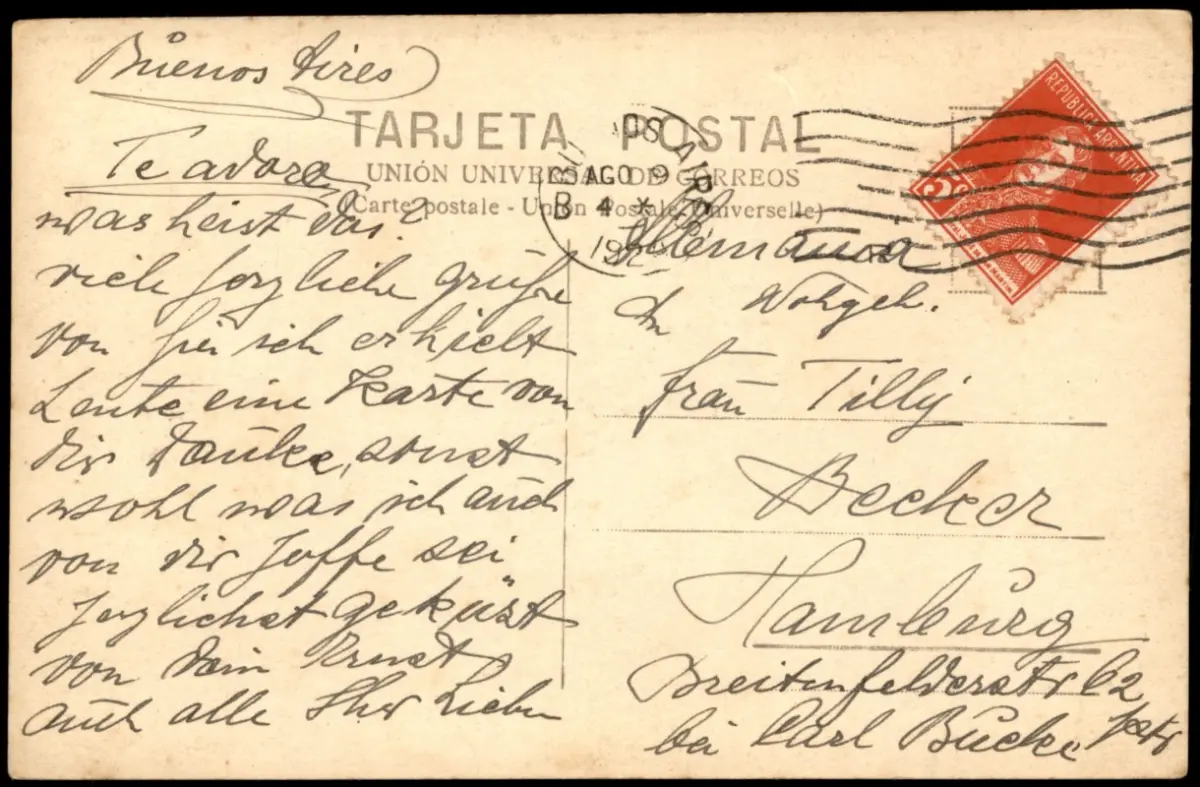 Buenos Aires
TARJETA POSTAL
UNIÓN UNIVERSAL DE CORREOS
(Carte postale - Union Postale Universelle)
REPUBLICA ARGENTINA
AGO 9
B 4
Te adoro
was heist das?
viele herzliche grüße
von hier ich erhielt
heute eine Karte von
dir danke, sonst
wohl was ich auch
von dir hoffe sei
herzlichst geküst
von dein Ernst
auch alle Ihr Lieben
Alemania
An Wohgeb.
Frau Tilly
Becker
Hamburg
Breitenfelderstr 62
bei Carl Bücke